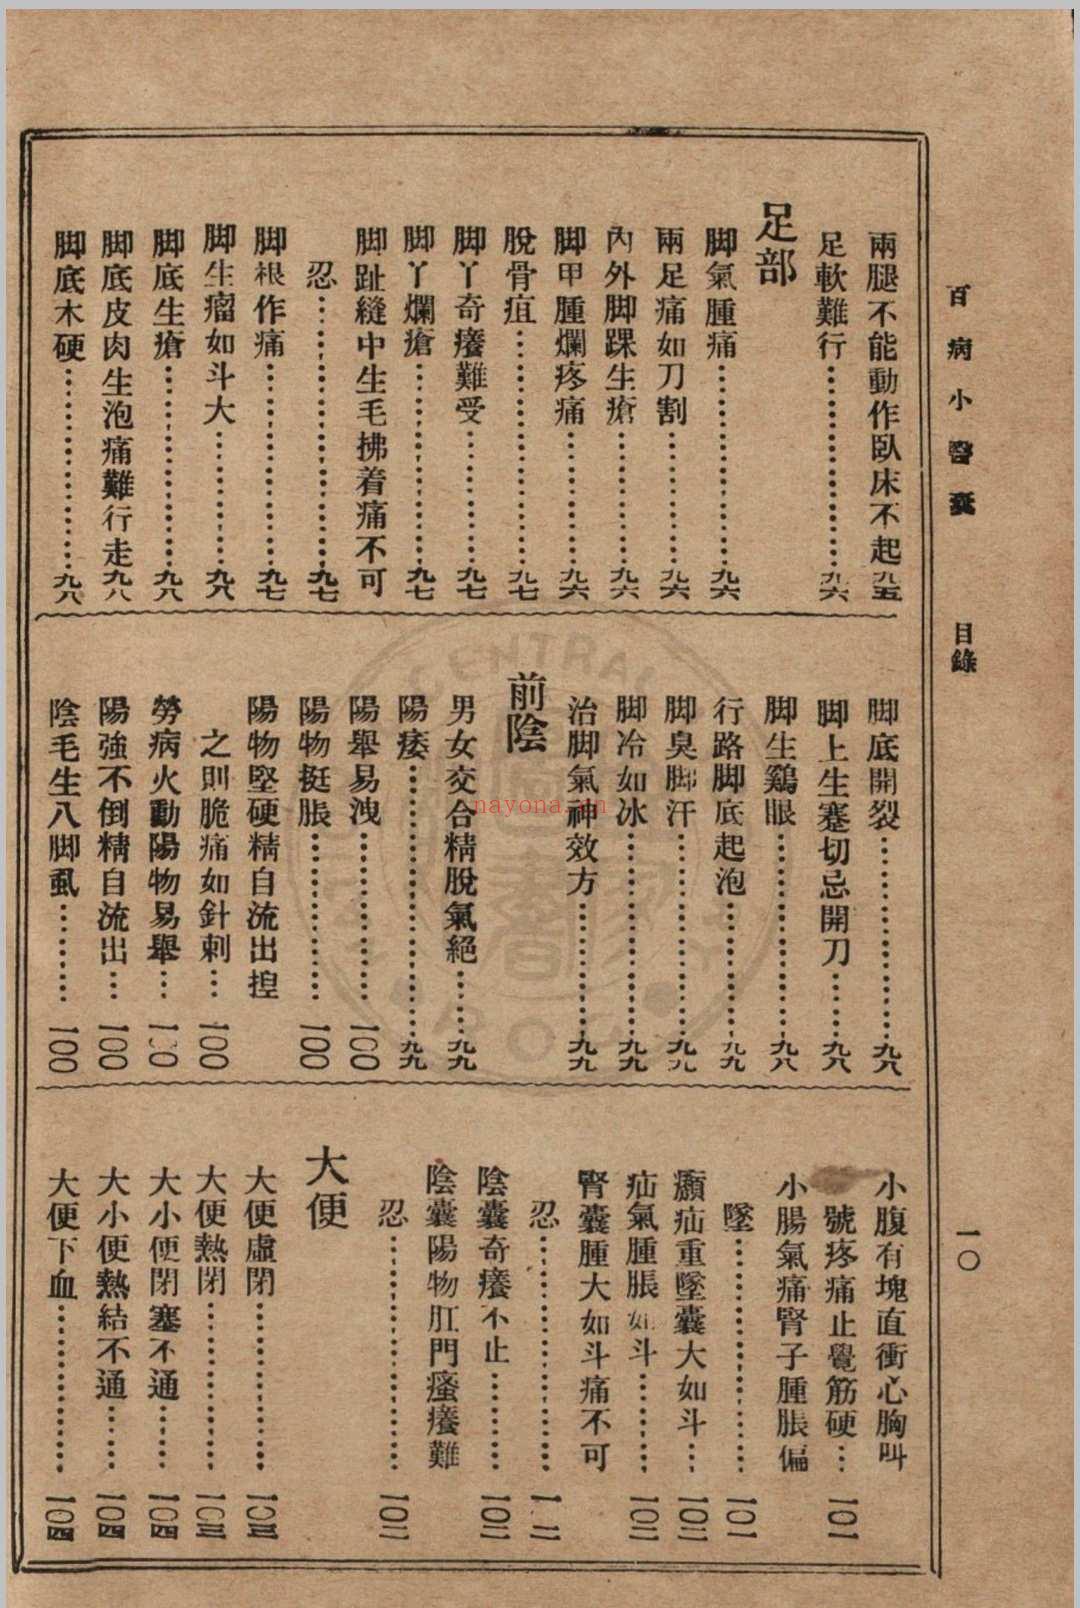 百病小醫囊
目錄
一〇
兩腿不能動作臥床不起九五
足軟難行…………九六
足部
脚氣腫痛…………九六
兩足痛如刀割…………九六
內外脚踝生瘡…………九六
脚甲腫爛疼痛…………九六
脫骨疽…………九七
脚丫奇癢難受…………九七
脚丫爛瘡…………九七
脚趾縫中生毛拂着痛不可
忍…………九七
脚根作痛…………九七
脚生瘤如斗大…………九八
脚底生瘡…………九八
脚底皮肉生泡痛難行走九八
脚底木硬…………九八
脚底開裂…………九八
脚上生蹇切忌開刀…………九八
脚生鷄眼…………九八
行路脚底起泡…………九九
脚臭脚汗…………九九
脚冷如冰…………九九
治脚氣神效方…………九九
前陰
男女交合精脫氣絕……九九
陽痿…………九九
陽舉易洩…………一〇〇
陽物挺脹…………一〇〇
陽物堅硬精自流出揑
之則脆痛如針刺…一〇〇
勞病火動陽物易舉…一〇〇
陽強不倒精自流出…一〇〇
陰毛生八脚虱…………一〇〇
小腹有塊直衝心胸叫
號疼痛止覺筋硬…一〇一
小腸氣痛腎子腫脹偏
墜…………一〇一
癩疝重墜囊大如斗…一〇二
疝氣腫脹如斗…………一〇二
腎囊腫大如斗痛不可
忍…………一〇二
陰囊奇癢不止…………一〇二
陰囊陽物肛門瘙癢難
忍…………一〇二
大便
大便虛閉…………一〇三
大便熱閉…………一〇三
大小便閉塞不通……一〇四
大小便熱結不通……一〇四
大便下血…………一〇四
nayona.cn
CENTRAL